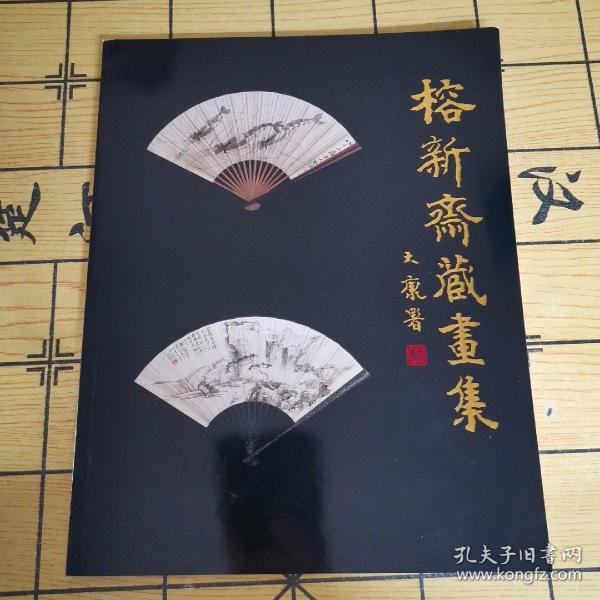 榕新斋藏畫集
大康署
楚
汉
孔夫子旧书网
www.kongfz.com